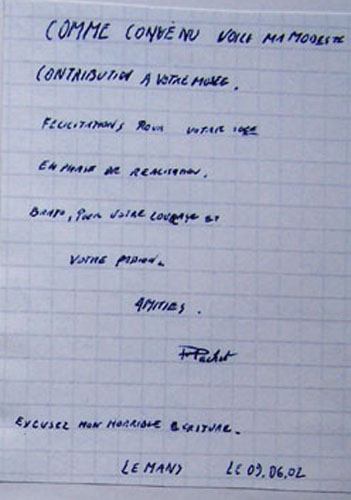 COMME CONVENU VOICI MA MODESTE
CONTRIBUTION A VOTRE MUSEE.
FELICITATIONS POUR VOTRE IDEE
EN PHASE DE REALISATION.
BRAVO, POUR VOTRE COURAGE ET
VOTRE PASSION.
AMITIES.
EXCUSEZ MON HORRIBLE ECRITURE.
LE MANS LE 09.06.02